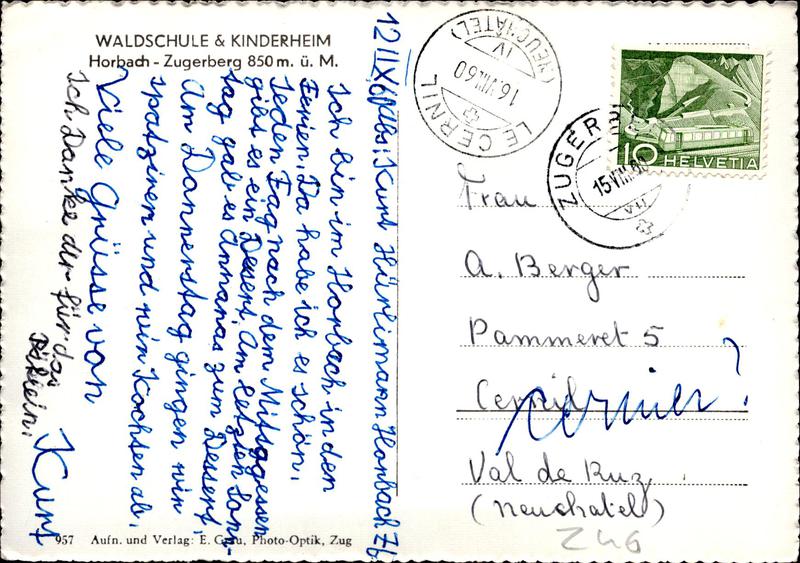 WALDSCHULE & KINDERHEIM
Horbach - Zugerberg 850 m. ü. M.
Abs. Kurt Hürlimann Horbach Zb
Ich bin im Horbach in den
Ferien. Da habe ich es schön.
Jeden Tag nach dem Mittagessen
gibt es ein Dessert. Am letzten Sonn-
tag gab es Annanas zum Dessert.
Am Dannerstag gingen wir
spatzieren und wir Kochsen ab.
Viele Grüsse von
Kurt
Ich Danke dir für das
957 Aufn. und Verlag: E. Grau, Photo-Optik, Zug
LE CERNIL
(NEUCHÂTEL)
IV
16.VIII.60
15.VIII.60
VII
10 HELVETIA
Frau
A. Berger
Pammeret 5
Cernier?
Val de Ruz
(Neuchatel)